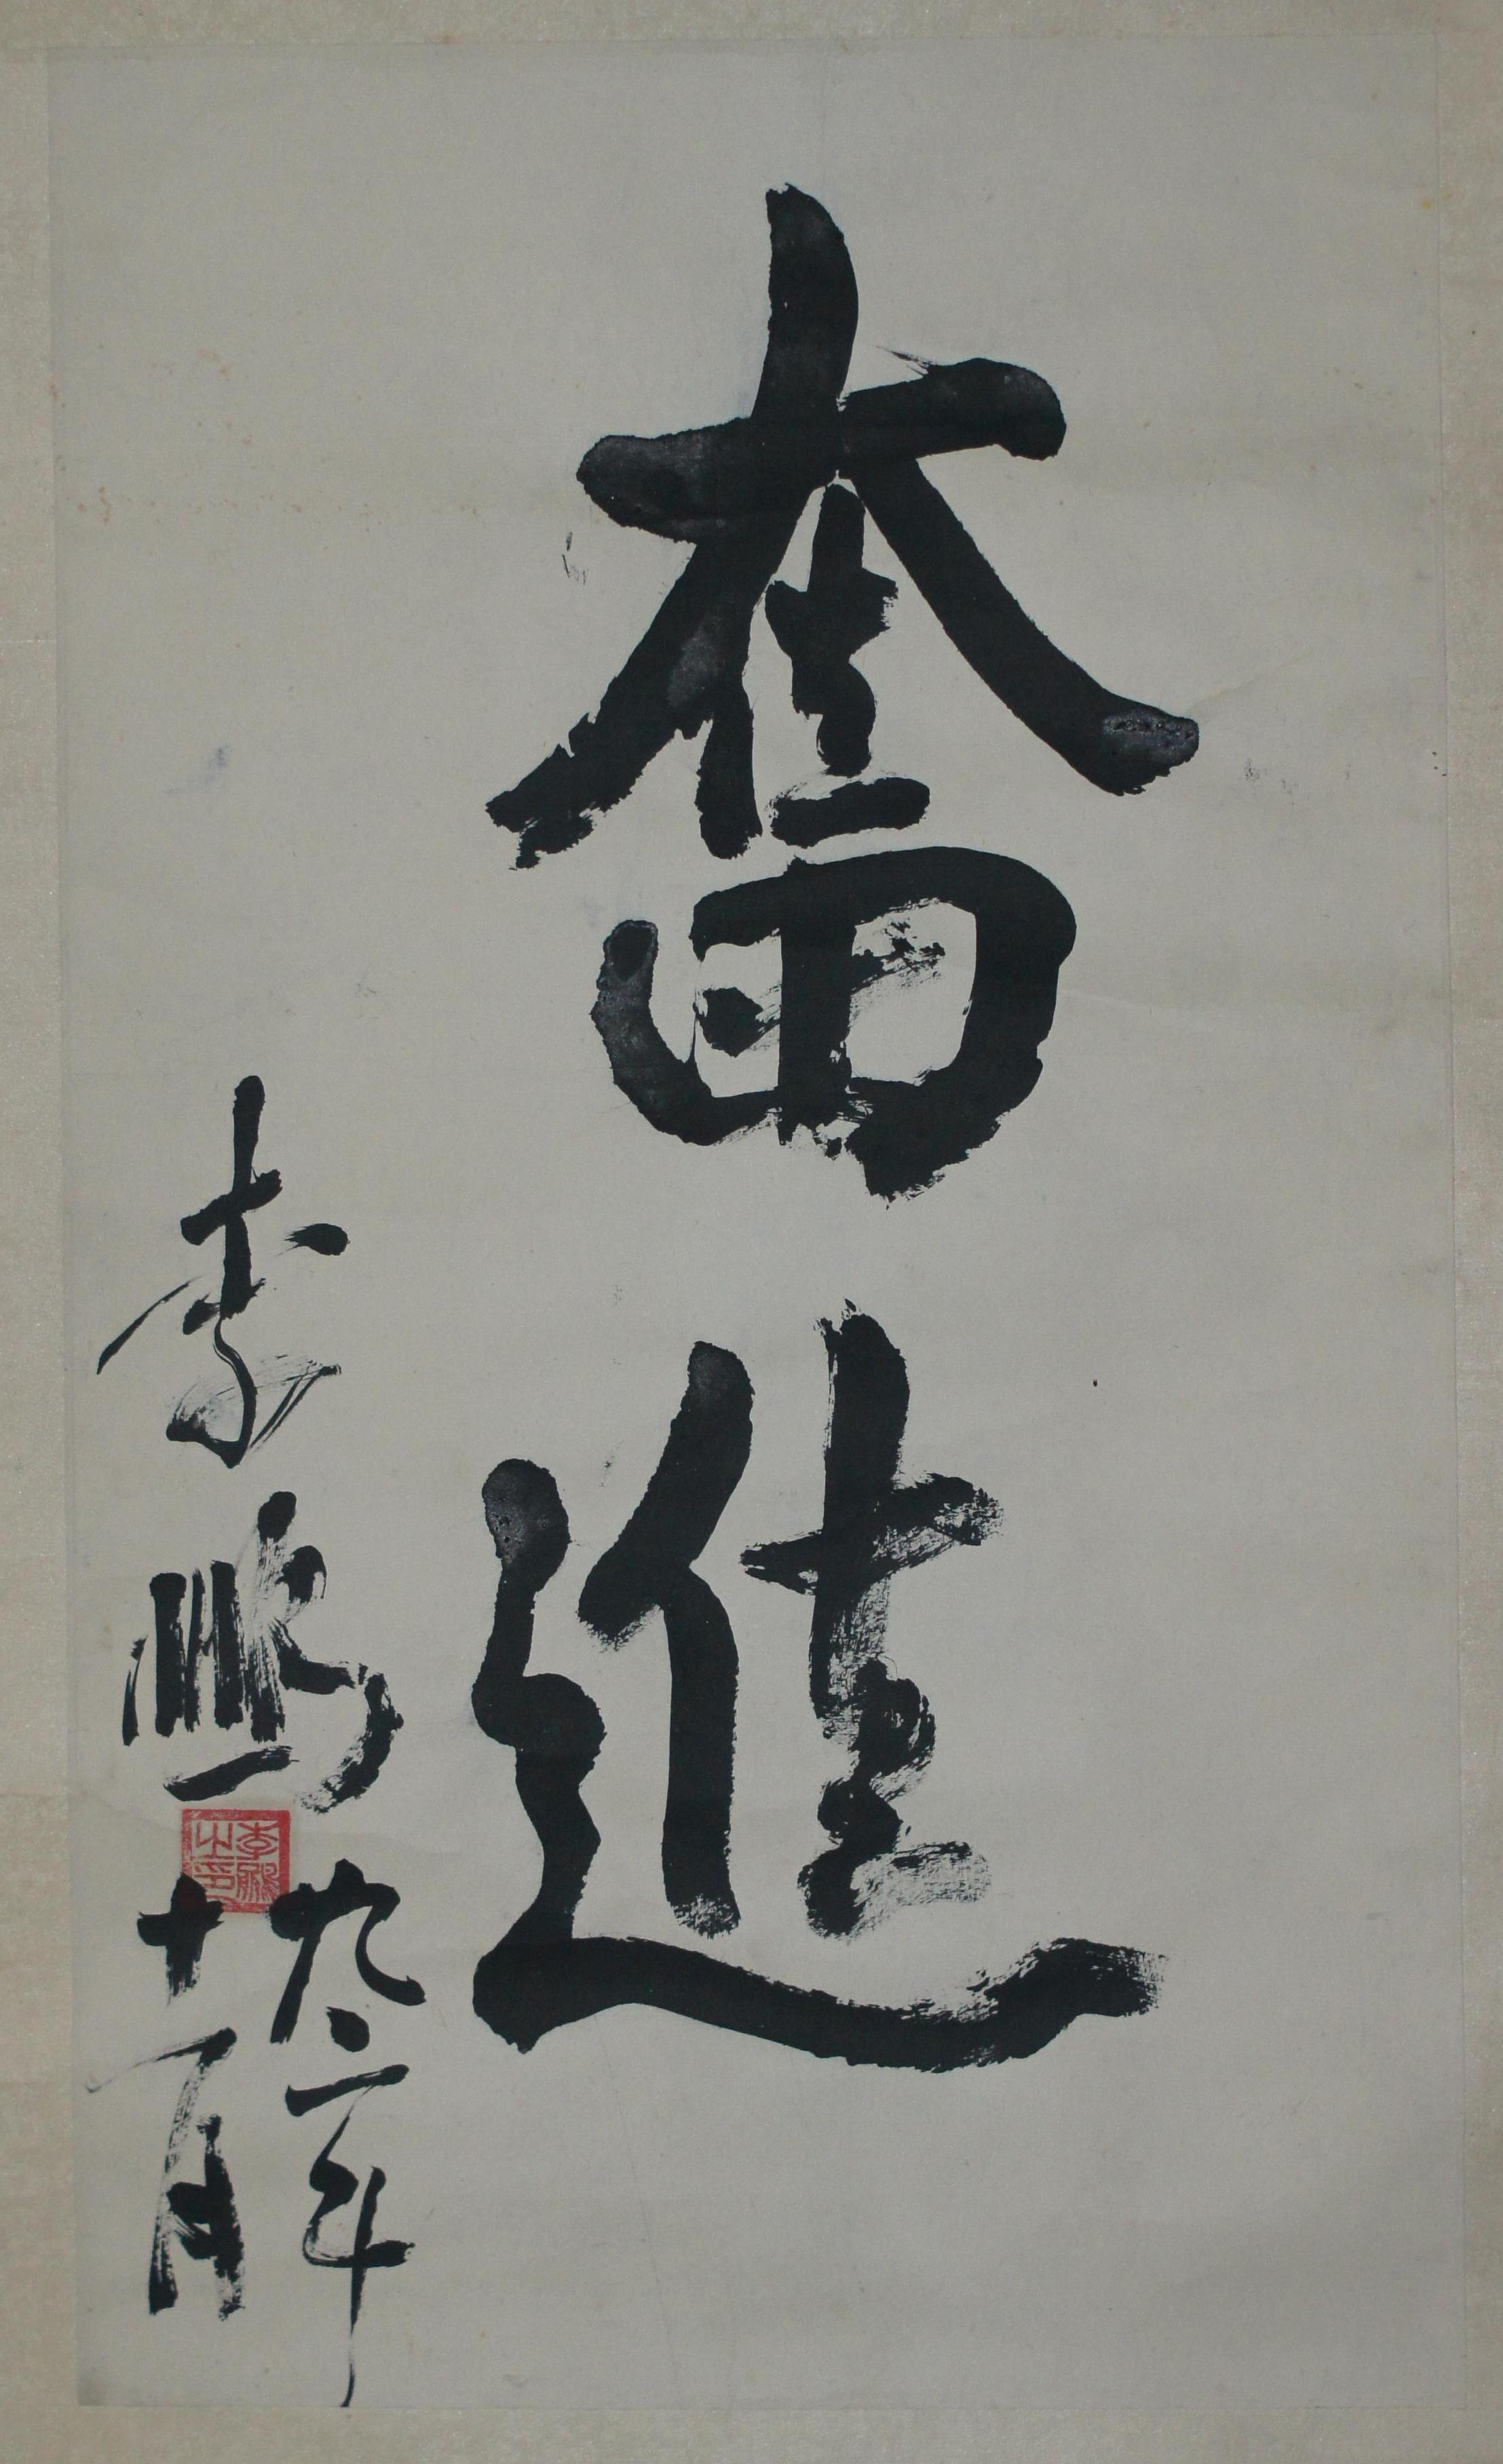 奮進
李鵬
九二年
十月
李鵬之印